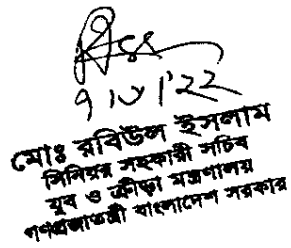 মোঃ রবিউল ইসলাম
সিনিয়র সহকারী সচিব
যুব ও ক্রীড়া মন্ত্রণালয়
গণপ্রজাতন্ত্রী বাংলাদেশ সরকার